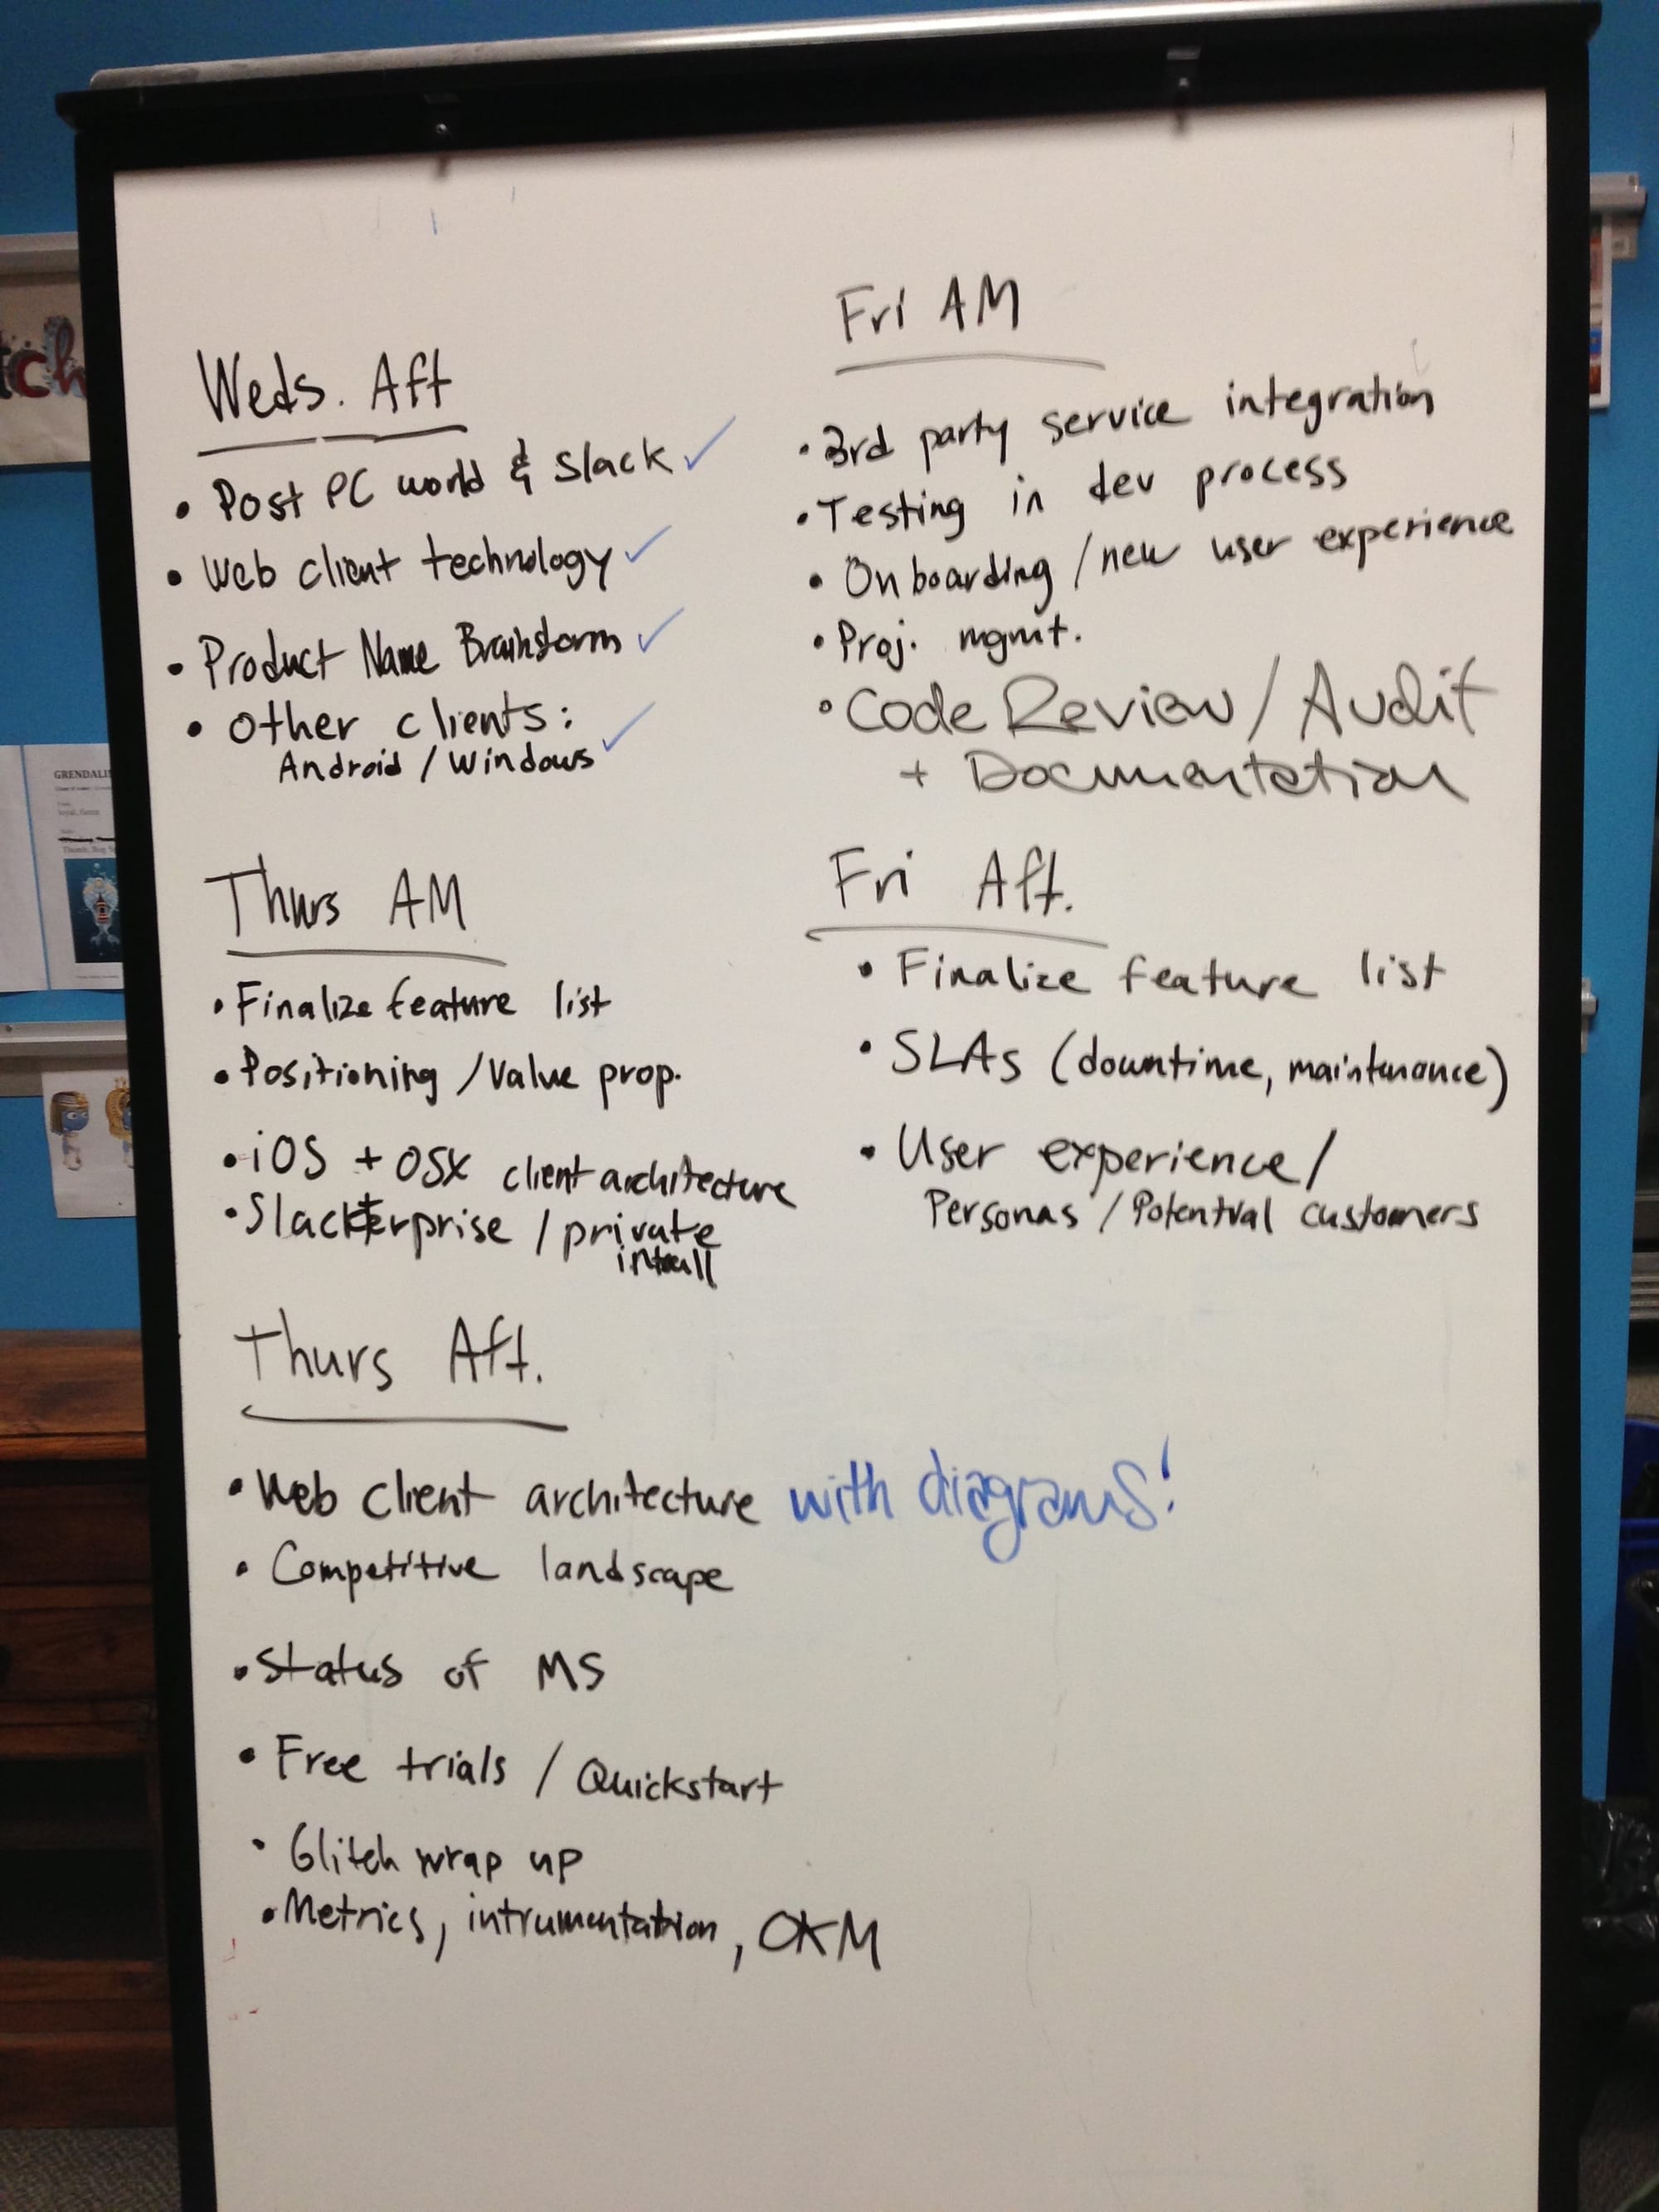 Weds. Aft
• Post PC world & Slack ✓
• Web client technology ✓
• Product Name Brainstorm ✓
• Other clients: ✓
Android / Windows
Thurs AM
• Finalize feature list
• Positioning / Value prop.
• iOS + OSX client architecture
• Slackterprise / private
install
Thurs Aft.
• Web client architecture with diagrams!
• Competitive landscape
• Status of MS
• Free trials / Quickstart
• Glitch wrap up
• Metrics, intrumentation, OKM
Fri AM
• 3rd party service integration
• Testing in dev process
• Onboarding / new user experience
• Proj. mgmt.
• Code Review / Audit
+ Documentation
Fri Aft.
• Finalize feature list
• SLAs (downtime, maintenance)
• User experience /
Personas / Potential customers
tch
GRENDALI